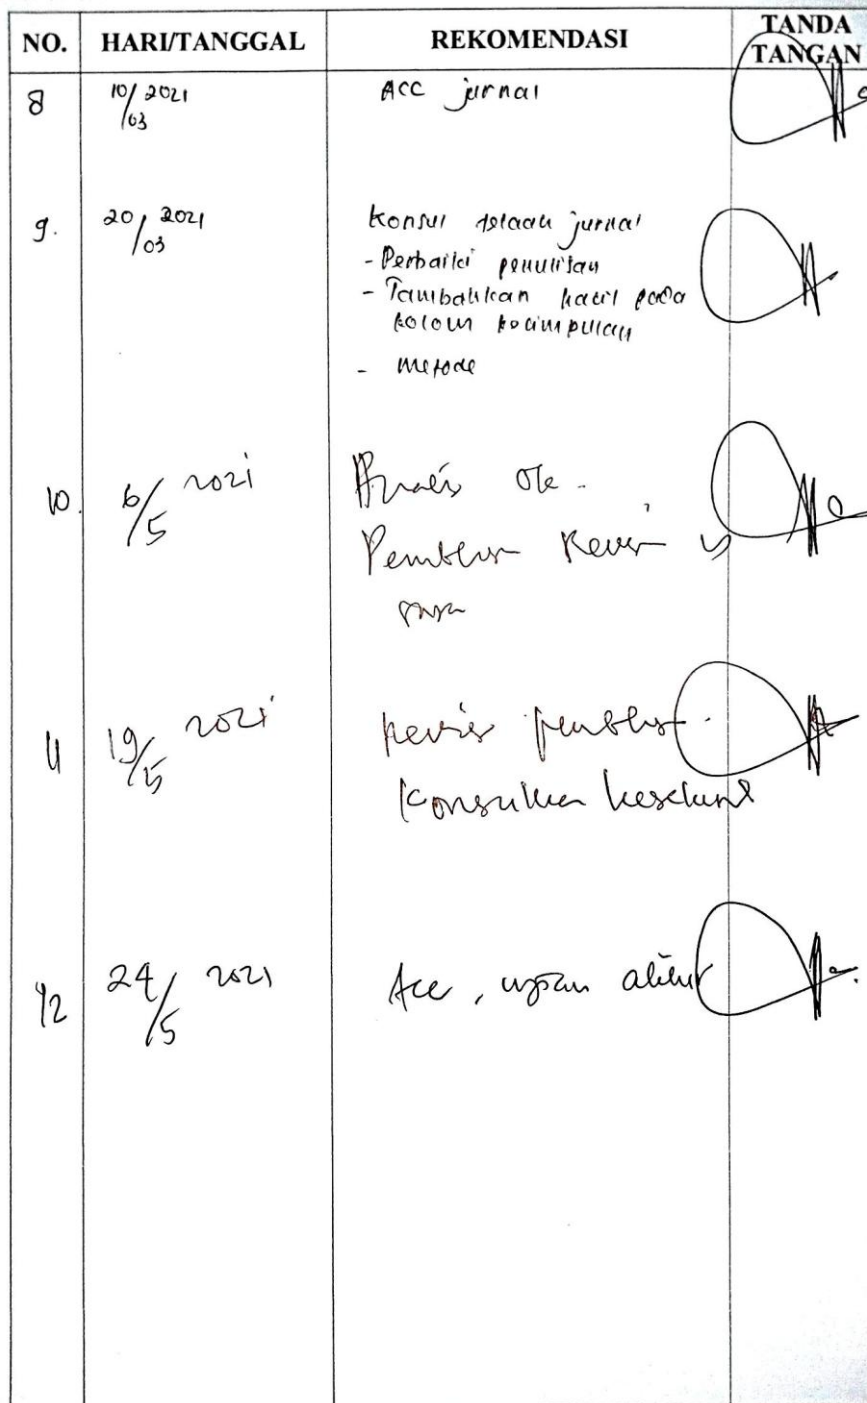 NO. HARI/TANGGAL REKOMENDASI TANDA TANGAN
8 10/03 2021 ACC jurnal
9. 20/03 2021 Konsul telaah jurnal
- Perbaiki penulisan
- Tambahkan hasil pada
kolom kesimpulan
- Metode
10. 6/5 2021 Ok -
Revisi
11 19/5 2021 Revisi
Konsulkan
12 24/5 2021 Acc, ujian akhir